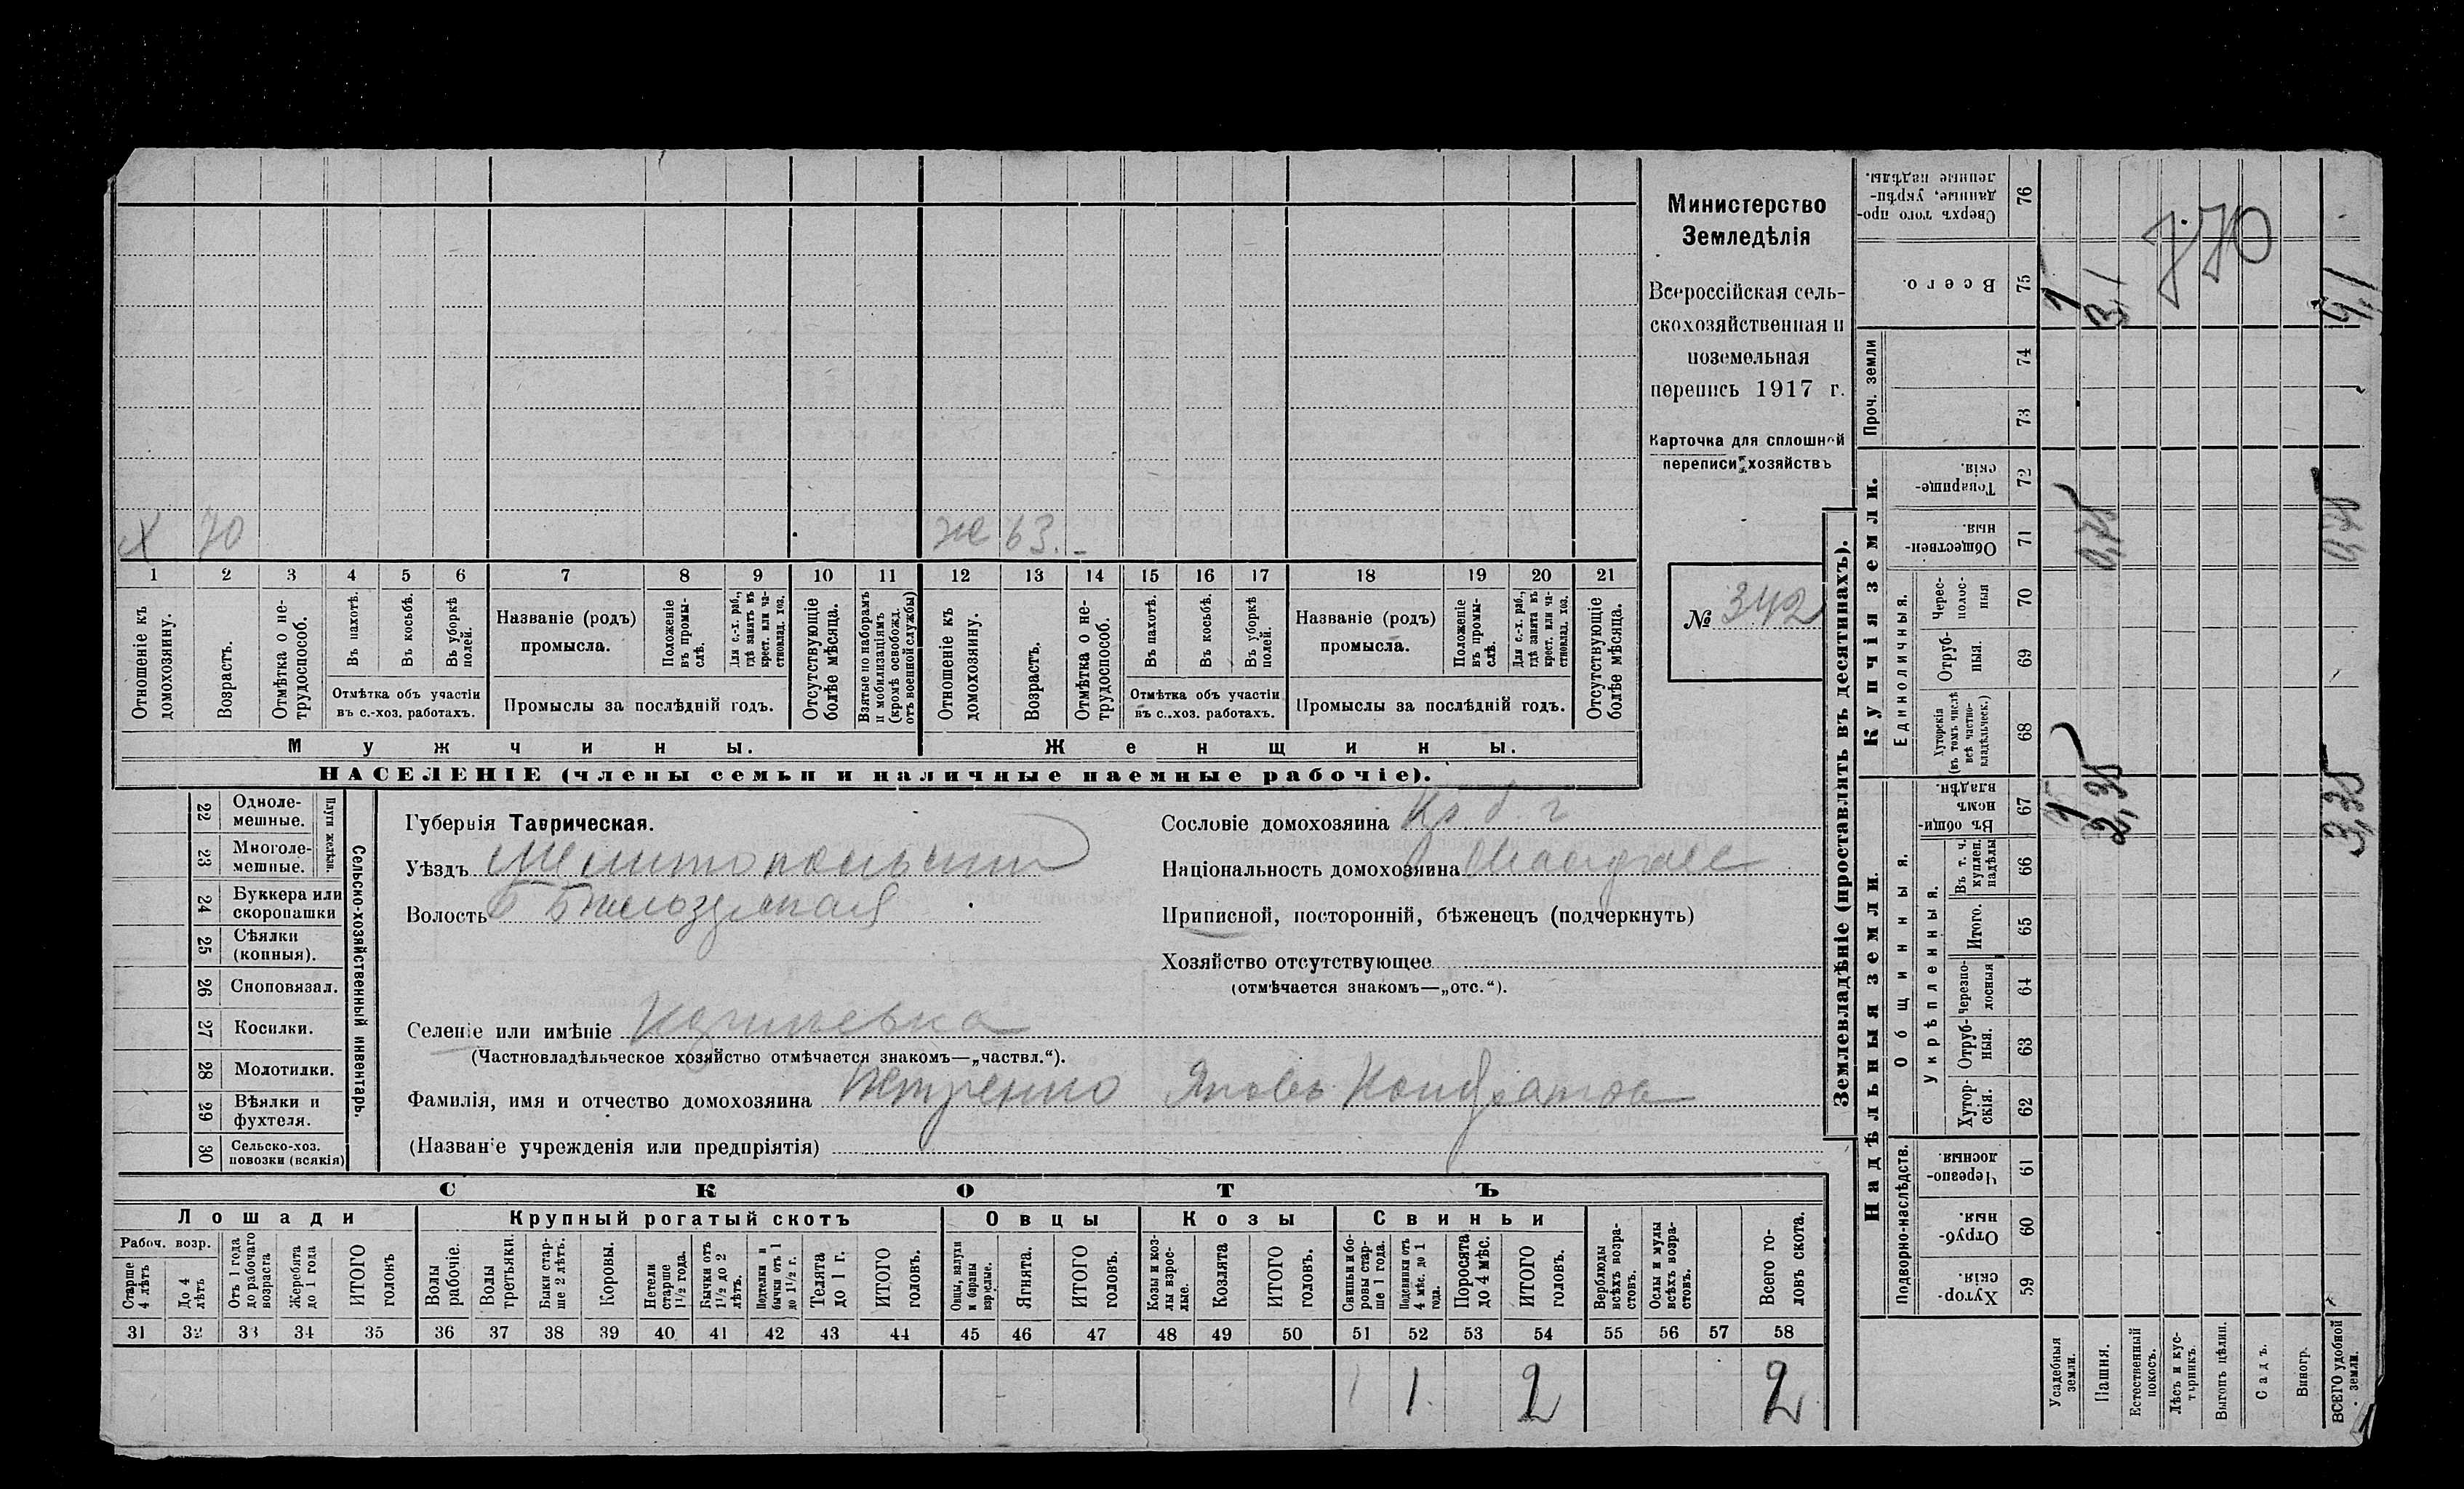 Министерство
Земледѣлія
Всероссійская сель-
скохозяйственная и
поземельная
перепись 1917 г.
Карточка для сплошной
переписи хозяйствъ
№ 342
х 70 же 63
1 2 3 4 5 6 7 8 9 10 11 12 13 14 15 16 17 18 19 20 21
Отношеніе къ домохозяину.
Возрастъ.
Отмѣтка о не-трудоспособ.
Въ пахотѣ.
Въ косьбѣ.
Въ уборкѣ полей.
Отмѣтка объ участіи
въ с.-хоз. работахъ.
Названіе (родъ)
промысла.
Положеніе въ промы-слѣ.
Для с.-х. раб., гдѣ занятъ въ крест. или ча-стновлад. хоз.
Промыслы за послѣдній годъ.
Отсутствующіе болѣе мѣсяца.
Взятые по наборамъ и мобилизаціямъ (кромѣ освобожд. отъ военной службы)
Отношеніе къ домохозяину.
Возрастъ.
Отмѣтка о не-трудоспособ.
Въ пахотѣ.
Въ косьбѣ.
Въ уборкѣ полей.
Отмѣтка объ участіи
въ с..хоз. работахъ.
Названіе (родъ)
промысла.
Положеніе въ промы-слѣ.
Для с.-х. раб., гдѣ занята въ крест. или ча-стновлад. хоз.
Промыслы за послѣдній годъ.
Отсутствующіе болѣе мѣсяца.
Мужчины.
Женщины.
НАСЕЛЕНІЕ (члены семьи и наличные наемные рабочіе).
Сельско-хозяйственный инвентарь.
Плуги желѣзн.
22 Одноле-мешные.
23 Многоле-мешные.
24 Буккера или скоропашки
25 Сѣялки (конныя).
26 Сноповязал.
27 Косилки.
28 Молотилки.
29 Вѣялки и фухтеля.
30 Сельско-хоз. повозки (всякія)
Губернія Таврическая.
Уѣздъ Мелитопольский
Волость Б Бѣлозерская
Селеніе или имѣніе
(Частновладѣльческое хозяйство отмѣчается знакомъ—„частвл.“).
Фамилія, имя и отчество домохозяина Петренко Яковъ Кондратов
(Названіе учрежденія или предпріятія)
Сословіе домохозяина Кр б. г
Національность домохозяина
Приписной, посторонній, бѣженецъ (подчеркнуть)
Хозяйство отсутствующее
(отмѣчается знакомъ—„отс.“).
СКОТЪ
Лошади
Крупный рогатый скотъ
Овцы
Козы
Свиньи
Рабоч. возр.
Старше 4 лѣтъ
До 4 лѣтъ
Отъ 1 года до рабочаго возраста
Жеребята до 1 года
ИТОГО головъ
Волы рабочіе.
Волы третьяки.
Быки стар-ше 2 лѣтъ.
Коровы.
Нетели старше 1½ года.
Бычки отъ 1½ до 2 лѣтъ.
Подтелки и бычки отъ 1 до 1½ г.
Телята до 1 г.
ИТОГО головъ.
Овцы, валухи и бараны взрослые.
Ягнята.
ИТОГО головъ.
Козы и коз-лы взрос-лые.
Козлята
ИТОГО головъ.
Свиньи и бо-ровы стар-ше 1 года.
Подсвинки отъ 4 мѣс. до 1 года.
Поросята до 4 мѣс.
ИТОГО головъ.
Верблюды всѣхъ возра-стовъ.
Ослы и мулы всѣхъ возра-стовъ.
Всего го-ловъ скота.
31 32 33 34 35 36 37 38 39 40 41 42 43 44 45 46 47 48 49 50 51 52 53 54 55 56 57 58
1 1 2 2
Землевладѣніе (проставлять въ десятинахъ).
Надѣльныя земли.
Купчія земли.
Проч. земли
Подворно-наслѣдств.
Общинныя.
Укрѣпленныя.
Единоличныя.
Хутор-скія. 59
Отруб-ныя. 60
Черезпо-лосныя. 61
Хутор-скія. 62
Отруб-ныя. 63
Черезпо-лосныя 64
Итого. 65
Въ т. ч. куплен. надѣлы 66
Въ общи-номъ владѣн. 67
Хуторскія (въ томъ числѣ всѣ частно-владѣльческ.) 68
Отруб-ныя. 69
Черес-полос-ныя 70
Обществен-ныя. 71
Товарище-скія. 72
73
74
Всего. 75
Сверхъ того про-данные, укрѣп-ленные надѣлы. 76
Усадебныя земли.
Пашня.
Естественный покосъ.
Лѣсъ и кус-тарникъ.
Выгонъ цѣлин.
Садъ.
Виногр.
ВСЕГО удобной земли.
1 1
2,35 0,75 3,1
3,35 0,75 4,1